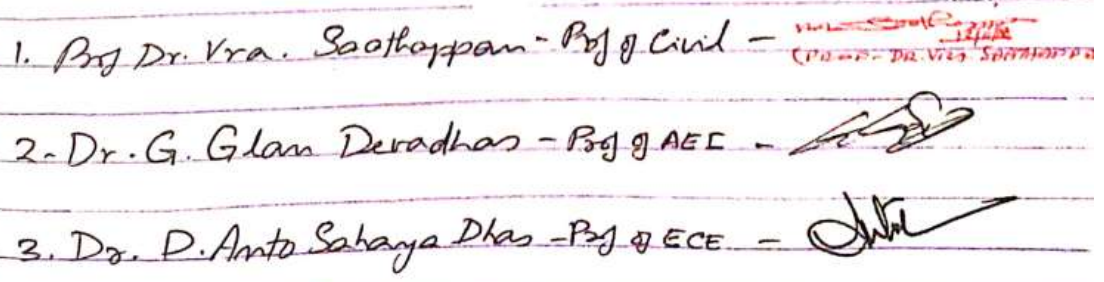 1. Prof Dr. Vra. Saathappan - Prof of Civil -
2- Dr. G. Glan Devadhas - Prof of AEI -
3. Dr. D. Anto Sahaya Dhas - Prof of ECE -